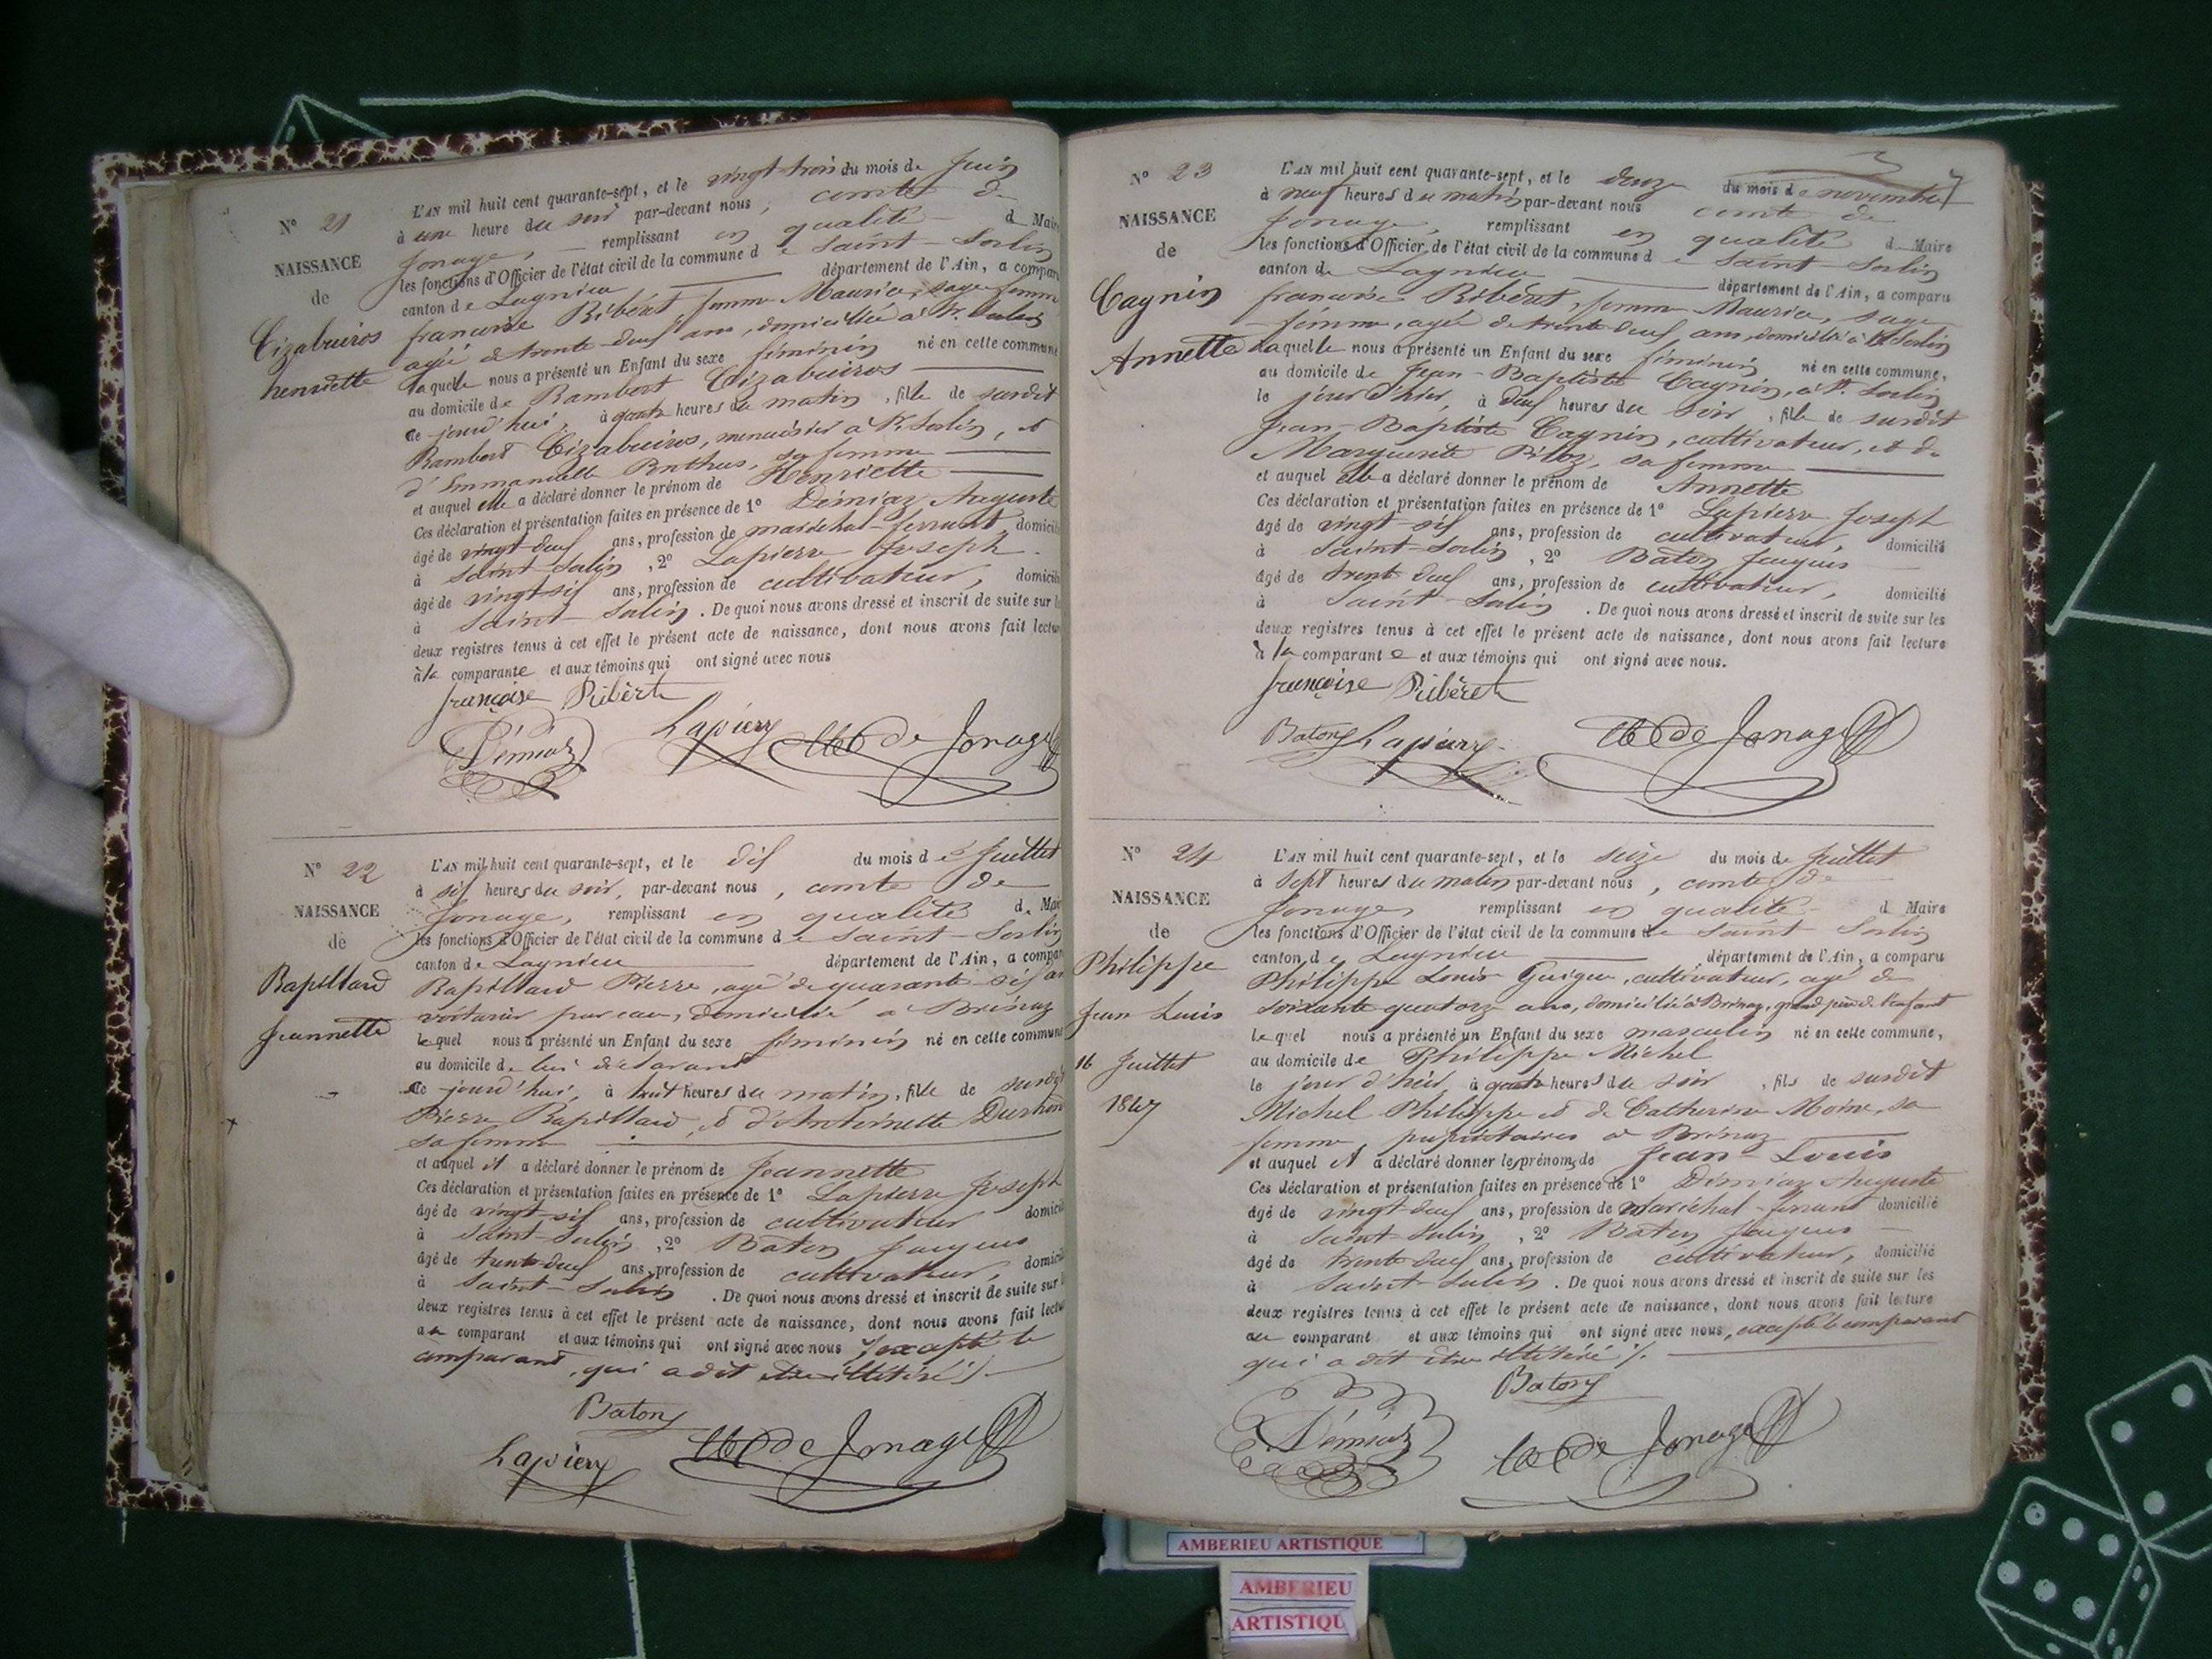 N° 21
NAISSANCE
de
Cizabuiros
henriette
L'AN mil huit cent quarante-sept, et le vingt-trois du mois de Juin
à une heure du soir par-devant nous, comte de
Jonage, remplissant en qualité d Maire
les fonctions d'Officier de l'état civil de la commune de Saint-Sorlin
canton de Lagnieu département de l'Ain, a comparu
francoise Ribérat femme Maurice, sage femme
agée de trente-deux ans, domiciliée à St. Sorlin
laquelle nous a présenté un Enfant du sexe féminin né en cette commune
au domicile de Rambert Cizabuiros
ce jourd'hui, à quatre heures du matin, fille de susdit
Rambert Cizabuiros, menuisier à St. Sorlin, et
d'Emmanuelle sa femme
et auquel elle a déclaré donner le prénom de Henriette
Ces déclaration et présentation faites en présence de 1° Démiaz Auguste
âgé de vingt-deux ans, profession de maréchal-ferrant, domicilié
à Saint-Sorlin, 2° Lapierre Joseph
âgé de vingt-six ans, profession de cultivateur, domicilié
à Saint-Sorlin. De quoi nous avons dressé et inscrit de suite sur les
deux registres tenus à cet effet le présent acte de naissance, dont nous avons fait lecture
à la comparante et aux témoins qui ont signé avec nous
françoise Ribèrt
Démiaz Lapierre de Jonage
N° 22
NAISSANCE
de
Rapillard
Jeannette
L'AN mil huit cent quarante-sept, et le dix du mois de Juillet
à six heures du soir, par-devant nous, comte de
Jonage, remplissant en qualité d. Maire
les fonctions d'Officier de l'état civil de la commune de Saint-Sorlin
canton de Lagnieu département de l'Ain, a comparu
Rapillard Pierre, agé de quarante-six ans
voiturier par eau, domicilié à Brénaz
lequel nous a présenté un Enfant du sexe féminin né en cette commune
au domicile de lui déclarant
ce jourd'hui, à huit heures du matin, fille de susdit
Pierre Rapillard, et d'Antoinette
sa femme
et auquel il a déclaré donner le prénom de Jeannette
Ces déclaration et présentation faites en présence de 1° Lapierre Joseph
âgé de vingt-six ans, profession de cultivateur domicilié
à Saint-Sorlin, 2° Baton Jacques
âgé de trente-deux ans, profession de cultivateur, domicilié
à Saint-Sorlin. De quoi nous avons dressé et inscrit de suite sur les
deux registres tenus à cet effet le présent acte de naissance, dont nous avons fait lecture
au comparant et aux témoins qui ont signé avec nous excepté le
comparant, qui a dit être illitéré
Baton
Lapierre de Jonage
N° 23
NAISSANCE
de
Cagnin
Annette
L'AN mil huit cent quarante-sept, et le douze du mois de novembre
à neuf heures du matin par-devant nous comte de
Jonage, remplissant en qualité d Maire
les fonctions d'Officier de l'état civil de la commune de Saint-Sorlin
canton de Lagnieu département de l'Ain, a comparu
francoise Ribérat, femme Maurice, sage
femme, agée de trente-deux ans, domiciliée à St Sorlin
laquelle nous a présenté un Enfant du sexe féminin né en cette commune,
au domicile de Jean-Baptiste Cagnin, à St. Sorlin
le jour d'hier, à deux heures du soir, fille de susdit
Jean-Baptiste Cagnin, cultivateur, et de
Marguerite Piloz, sa femme
et auquel elle a déclaré donner le prénom de Annette
Ces déclaration et présentation faites en présence de 1° Lapierre Joseph
âgé de vingt-six ans, profession de cultivateur, domicilié
à Saint-Sorlin, 2° Baton Jacques
âgé de trente deux ans, profession de cultivateur, domicilié
à Saint-Sorlin. De quoi nous avons dressé et inscrit de suite sur les
deux registres tenus à cet effet le présent acte de naissance, dont nous avons fait lecture
à la comparante et aux témoins qui ont signé avec nous.
françoise Ribèret
Baton Lapierre de Jonage
N° 24
NAISSANCE
de
Philippe
Jean Louis
16 Juillet
1847
L'AN mil huit cent quarante-sept, et le seize du mois de Juillet
à sept heures du matin par-devant nous, comte de
Jonage, remplissant en qualité d Maire
les fonctions d'Officier de l'état civil de la commune de Saint-Sorlin
canton de Lagnieu département de l'Ain, a comparu
Philippe Louis Guigue, cultivateur, agé de
soixante quatorze ans, domicilié à Brénaz, grand père de l'enfant
lequel nous a présenté un Enfant du sexe masculin né en cette commune,
au domicile de Philippe Michel
le jour d'hier, à quatre heures du soir, fils de susdit
Michel Philippe et de Catherine Moine, sa
femme, propriétaires à Brénaz
et auquel il a déclaré donner les prénoms de Jean-Louis
Ces déclaration et présentation faites en présence de 1° Démiaz Auguste
âgé de vingt-deux ans, profession de maréchal-ferrant domicilié
à Saint-Sorlin, 2° Baton Jacques
âgé de trente-deux ans, profession de cultivateur, domicilié
à Saint-Sorlin. De quoi nous avons dressé et inscrit de suite sur les
deux registres tenus à cet effet le présent acte de naissance, dont nous avons fait lecture
au comparant et aux témoins qui ont signé avec nous, excepté le comparant
qui a dit être illitéré
Baton
Démiaz de Jonage
AMBERIEU ARTISTIQUE
AMBERIEU
ARTISTIQU